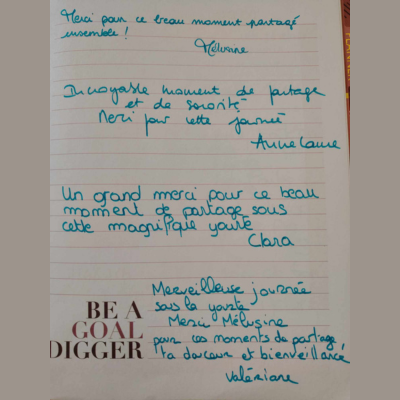 Merci pour ce beau moment partagé
ensemble !
Mélusine
Incroyable moment de partage
et de sororité
Merci pour cette journée
Anne Laure
Un grand merci pour ce beau
moment de partage sous
cette magnifique yourte
Clara
Merveilleuse journée
sous la yourte
Merci Mélusine
pour ces moments de partage
ta douceur et bienveillance
Valériane
BE A
GOAL
DIGGER